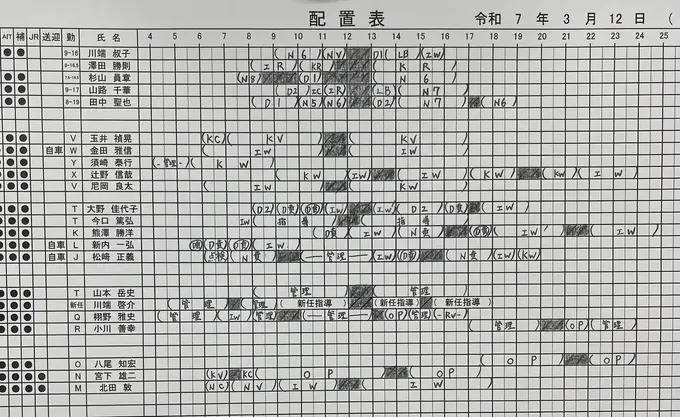 配置表 令和 7 年 3 月 12 日 (
AIT 補 JR 送迎 勤 氏名 4 5 6 7 8 9 10 11 12 13 14 15 16 17 18 19 20 21 22 23 24 25
9-16 川端 叔子 (N6)(NV) D1(LB)(IW)
澤田 勝則 (IR)(KR) (KR)
杉山 員章 (N8) (D1) (N6)
9-17 山路 千華 (D2)IC(IR) (LB)(N7)
8-19 田中 聖也 (D1)(N5)(N6) (D2)(N7) (N6)
V 玉井 禎晃 (KC)(KV) (KV)
自車 W 金田 雅信 (IW) (IW)
Y 須崎 泰行 (-管理-)(KW)
X 辻野 信哉 (KW)(IW) (IW)(KW) (KW)(IW)
V 尼岡 良太 (IW) (KW)
T 大野 佳代子 (D2)(D責)(O責)(IW) (IW)(D2)(D責) (IW)
T 今口 篤弘 IW(指導) (指導)
K 熊澤 勝洋 (D責)(IW)(N責) (O責)(IW) (IW)
自車 L 新内 一弘 (D責)(O責)(IW)
自車 J 松崎 正義 (点検)(N責) (—管理—)(IW)(O責) (N責)(IW)(KW)
T 山本 岳史 (管理) (管理)
新任 川端 啓介 (管理) (管理)(新任指導) (新任指導) (新任指導)
Q 栩野 雅史 (管理)(IW)(管理) (—管理—) (OP)(-RV-)
R 小川 善幸 (管理) (OP)(管理)
O 八尾 知宏 (OP) (OP)
N 宮下 雄二 (KV) KC(OP) (OP)
M 北田 敦 (NC)(NV)(IW) (IW)